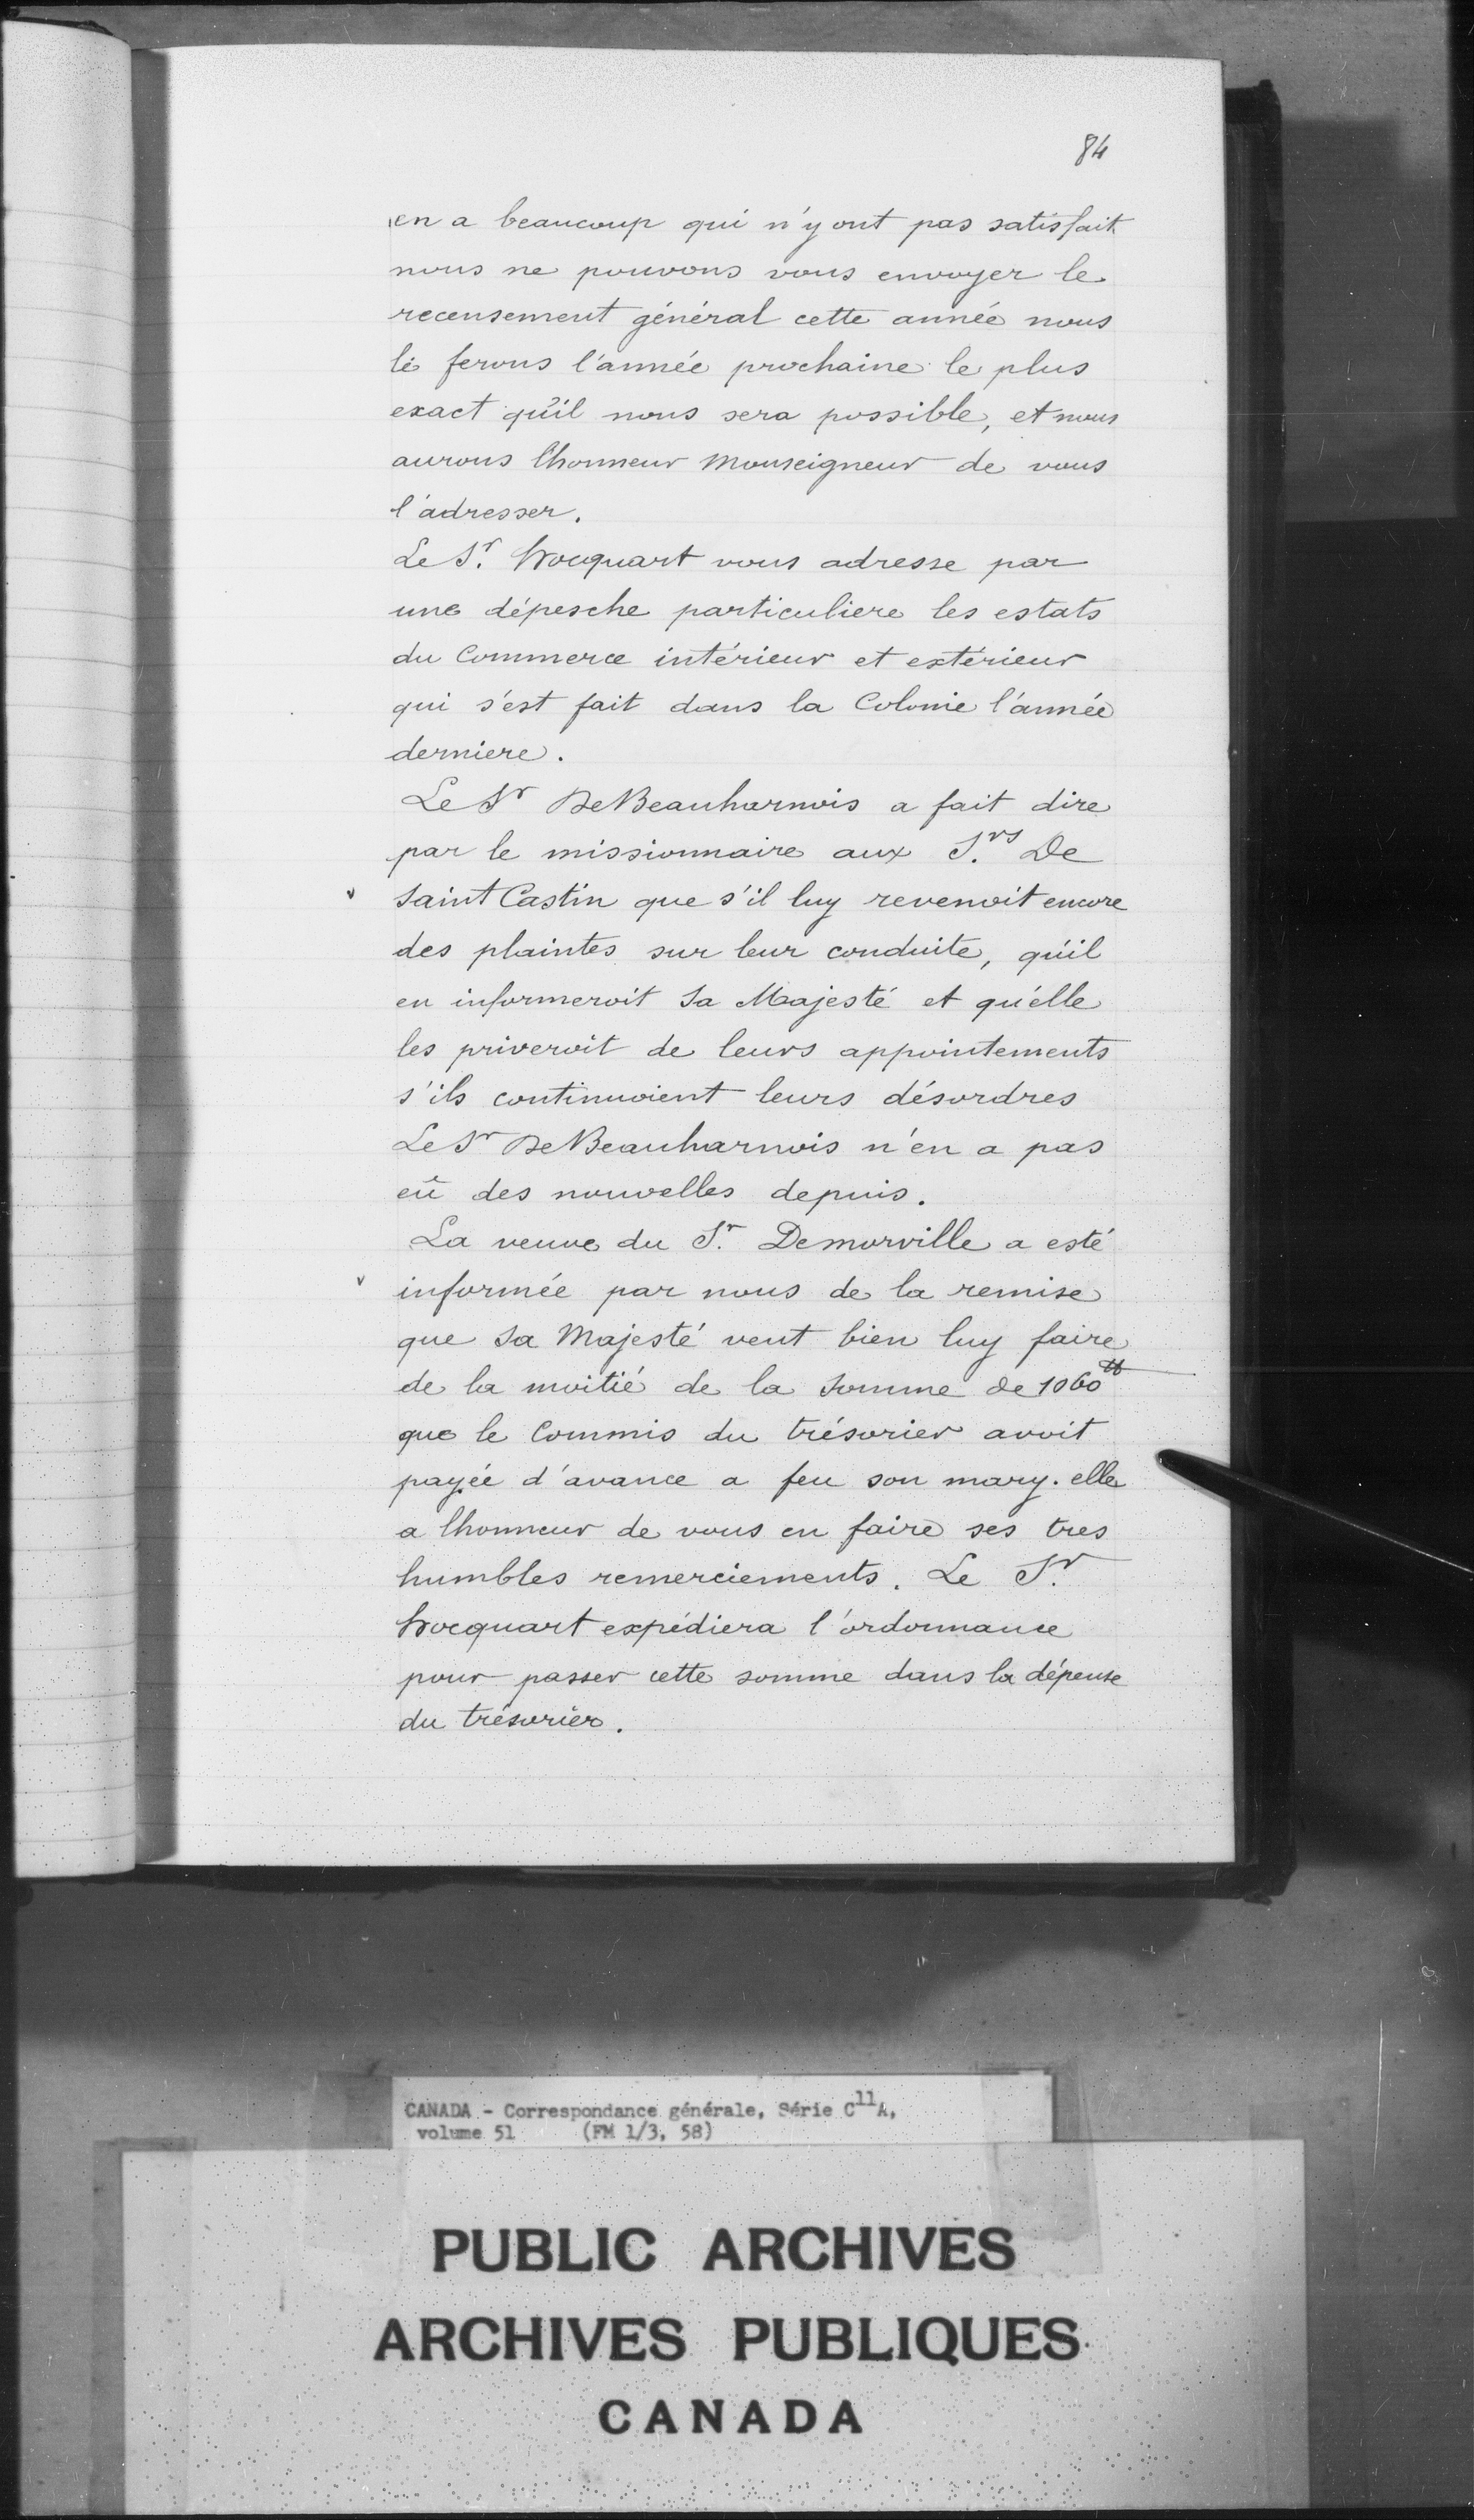 84
en a beaucoup qui n'y ont pas satisfait
nous ne pouvons vous envoyer le
recensement général cette année nous
le ferons l'année prochaine le plus
exact qu'il nous sera possible, et nous
aurons lhonneur Monseigneur de vous
l'adresser.
Le Sr. hocquart vous adresse par
une dépesche particuliere les estats
du Commerce intérieur et extérieur
qui s'est fait dans la Colonie l'année
derniere.
Le Sr DeBeauharnois a fait dire
par le missionnaire aux S.rs De
Saint Castin que s'il luy revenoit encore
des plaintes sur leur conduite, qu'il
en informeroit Sa Majesté et qu'elle
les priveroit de leurs appointements
s'ils continuoient leurs désordres
Le Sr DeBeauharnois n'en a pas
eû des nouvelles depuis.
La veuve du Sr. Demorville a esté
informée par nous de la remise
que Sa Majesté veut bien luy faire
de la moitié de la Somme de 1060tt
que le Commis du trésorier avoit
payée d'avance a feu son mary. elle
a lhonneur de vous en faire ses tres
humbles remerciements. Le Sr.
hocquart expédiera l'ordonnance
pour passer cette somme dans la dépense
du trésorier.
CANADA - Correspondance générale, Série C11A,
volume 51 (FM 1/3, 58)
PUBLIC ARCHIVES
ARCHIVES PUBLIQUES
CANADA